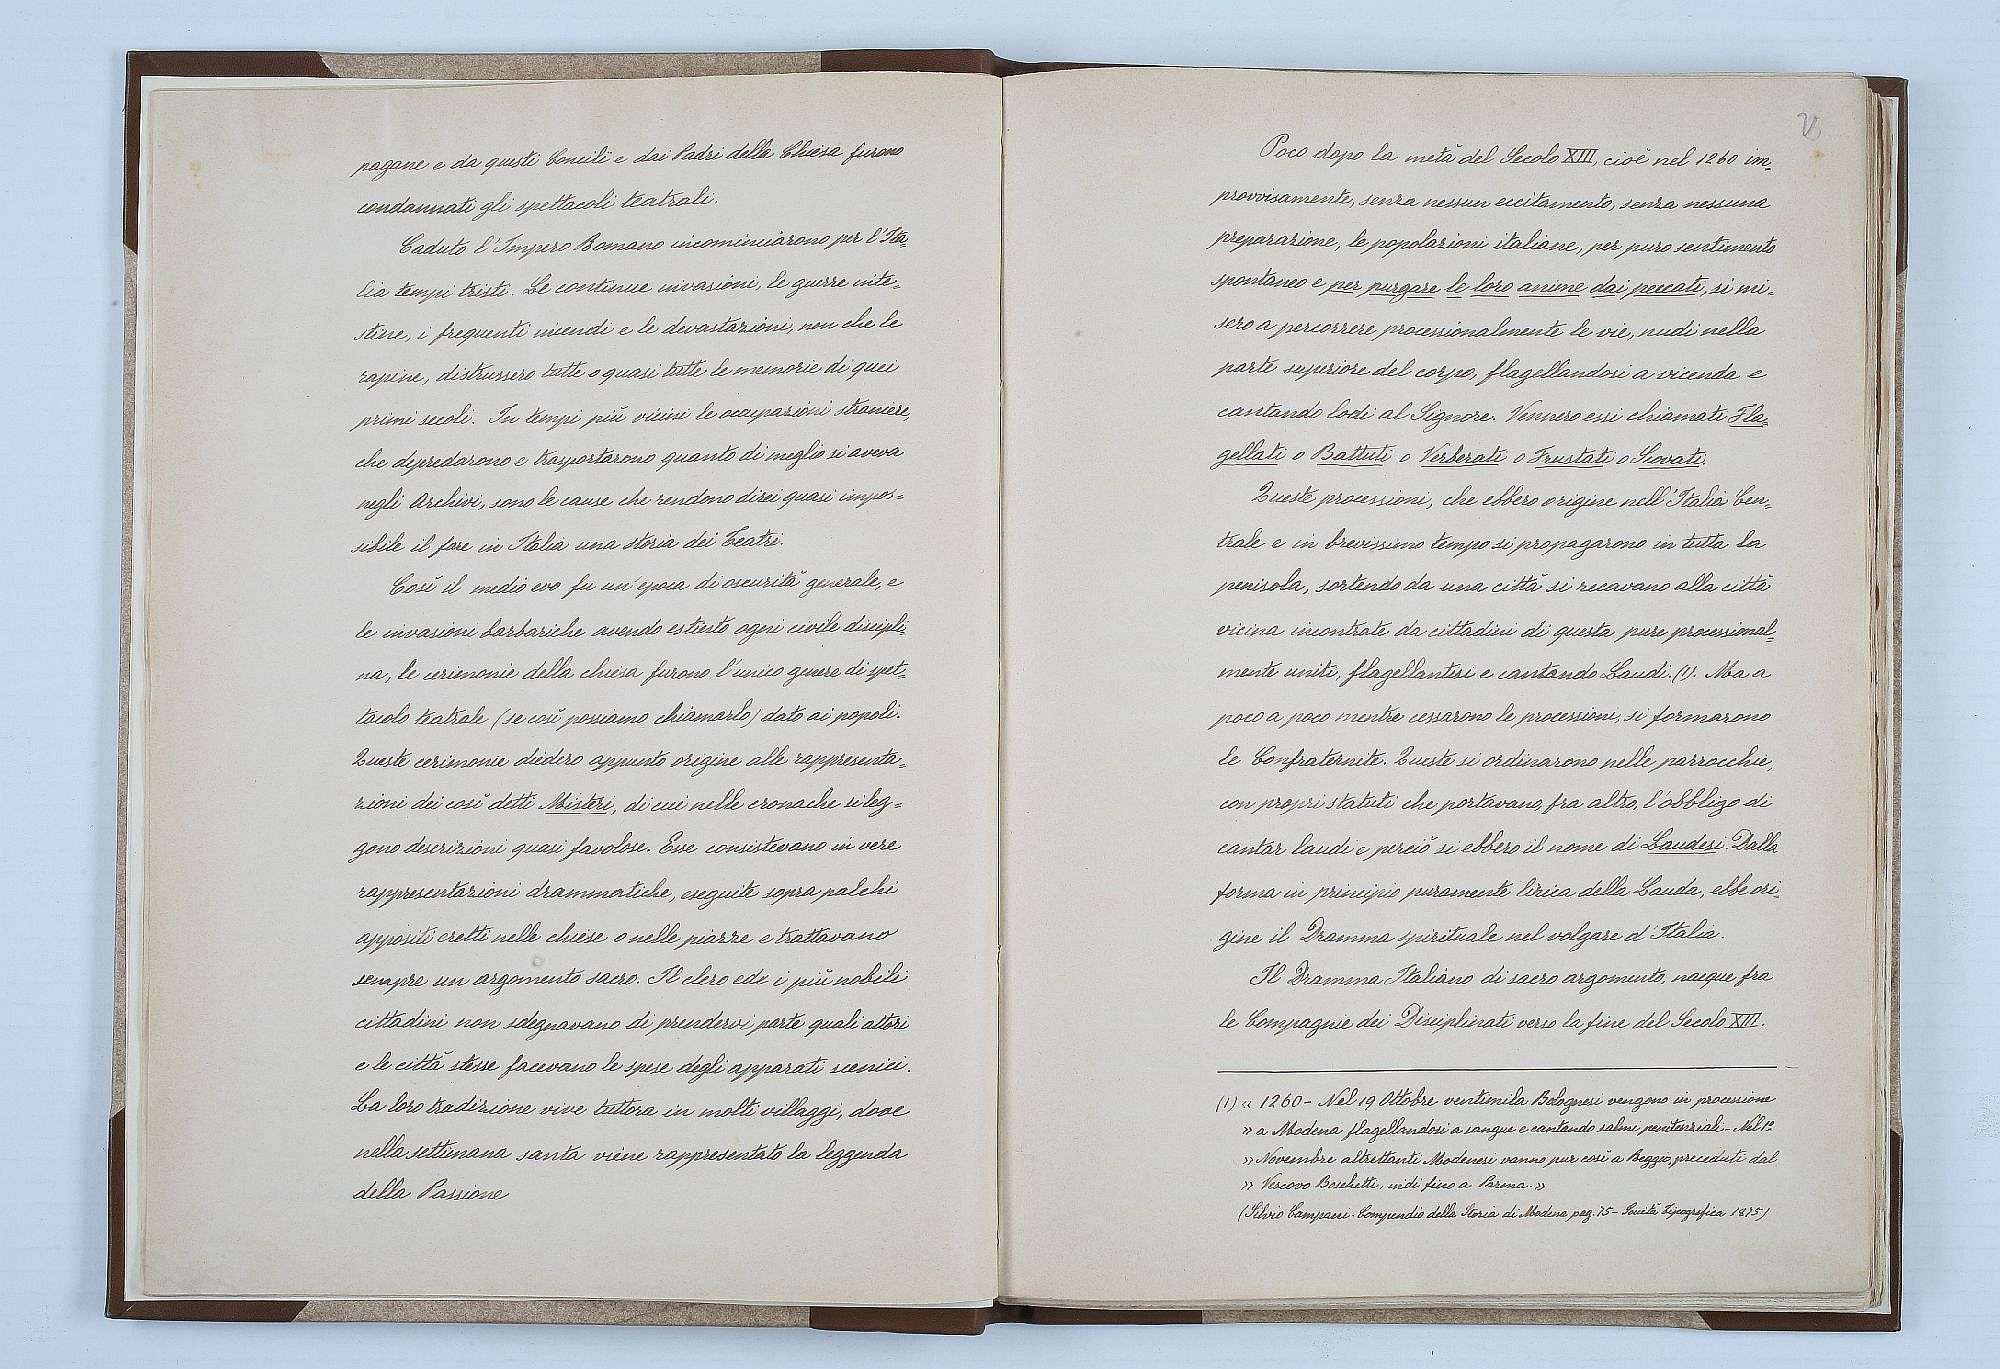 pagane e da questi Concilî e dai Padri della Chiesa furono
condannati gli spettacoli teatrali.
Caduto l'Impero Romano incominciarono per l'Ita-
lia tempi tristi. Le continue invasioni, le guerre inte-
stine, i frequenti incendi e le devastazioni, non che le
rapine, distrussero tutte o quasi tutte le memorie di quei
primi secoli. In tempi più vicini le occupazioni straniere,
che depredarono e trasportarono quanto di meglio si aveva
negli Archivi, sono le cause che rendono direi quasi impos-
sibile il fare in Italia una storia dei Teatri.
Così il medio evo fu un'epoca di oscurità generale, e
le invasioni barbariche avendo estinto ogni civile discipli-
na, le cerimonie della chiesa furono l'unico genere di spet-
tacolo teatrale (se così possiamo chiamarlo) dato ai popoli.
Queste cerimonie diedero appunto origine alle rappresenta-
zioni dei così detti Misteri, di cui nelle cronache si leg-
gono descrizioni quasi favolose. Esse consistevano in vere
rappresentazioni drammatiche, eseguite sopra palchi
appositi eretti nelle chiese o nelle piazze e trattavano
sempre un argomento sacro. Il clero ed i più nobili
cittadini non sdegnavano di prendervi parte quali attori
e le città stesse facevano le spese degli apparati scenici.
La loro tradizione vive tuttora in molti villaggi, dove
nella settimana santa viene rappresentato la leggenda
della Passione
Poco dopo la metà del Secolo XIII, cioè nel 1260 im-
provvisamente, senza nessun eccitamento, senza nessuna
preparazione, le popolazioni italiane, per puro sentimento
spontaneo e per purgare le loro anime dai peccati, si mi-
sero a percorrere processionalmente le vie, nudi nella
parte superiore del corpo, flagellandosi a vicenda e
cantando lodi al Signore. Vennero essi chiamati Fla-
gellati o Battuti o Verberati o Frustati o Scovati.
Queste processioni, che ebbero origine nell'Italia Cen-
trale e in brevissimo tempo si propagarono in tutta la
penisola, sortendo da una città si recavano alla città
vicina incontrate da cittadini di questa pure processional-
mente uniti, flagellantesi e cantando Laudi. (1). Ma a
poco a poco mentre cessarono le processioni, si formarono
le Confraternite. Queste si ordinarono nelle parrocchie,
con propri statuti che portavano, fra altro, l'obbligo di
cantar laudi e perciò si ebbero il nome di Laudesi. Dalla
forma in principio puramente lirica della Lauda, ebbe ori-
gine il Dramma spirituale nel volgare d'Italia.
Il Dramma Italiano di sacro argomento, nacque fra
le Compagnie dei Disciplinati verso la fine del Secolo XIII.
(1) « 1260 - Nel 19 Ottobre ventimila Bolognesi vengono in processione
» a Modena flagellandosi a sangue e cantando salmi penitenziali - Nel 1º
» Novembre altrettanti Modenesi vanno pur così a Reggio, preceduti dal
» Vescovo Boschetti, indi fino a Parma. »
(Silvio Campani. Compendio della Storia di Modena pag. 75 - Società Tipografica 1875)